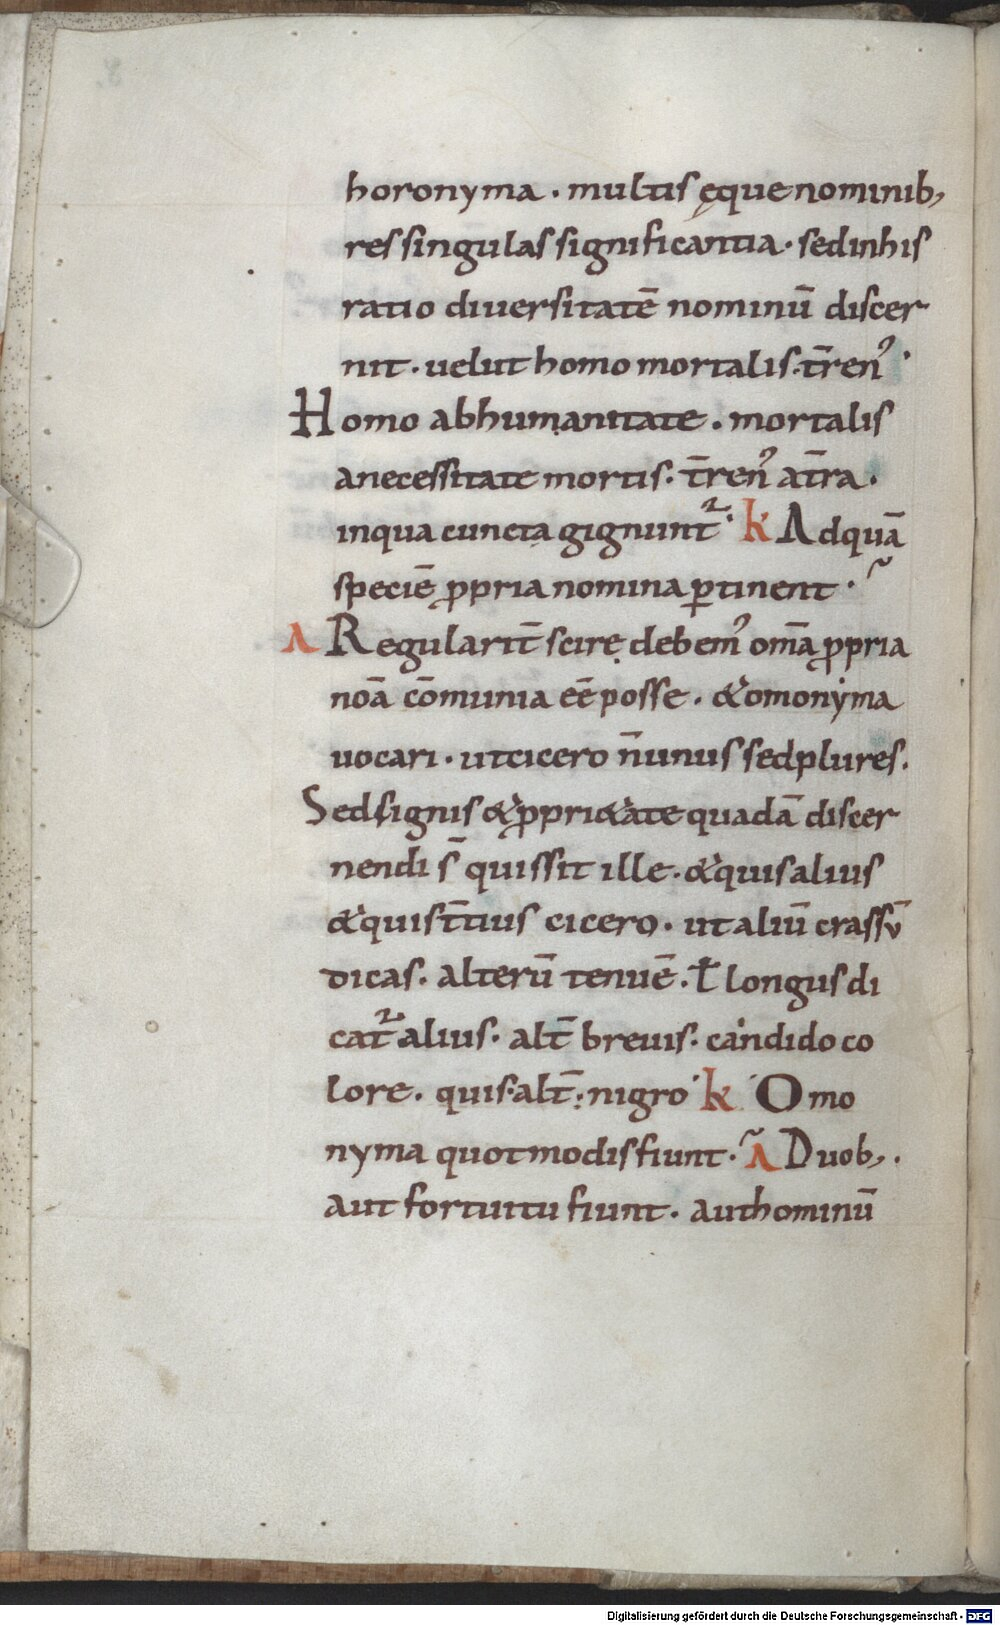 horonyma . multis ęque nominib,
res singulas significantia . sed in his
ratio diuersitatē nominū discer
nit . uelut homo mortalis . t̄ren᾽ .
Homo ab humanitate . mortalis
a necessitate mortis . t̄ren᾽ a t̄ra .
in qua cuncta gignunt̄᷑ . k Ad quā
speciē ꝓpria nomina ꝑtinent . ~
Λ Regularit̄ scire debem᾽ om̄a ꝓpria
nōa cōmunia eē posse . & omonyma
uocari . ut cicero n̄ unus sed plures .
Sed signis & ꝓpri&ate quadā discer
nendi s̄ quis sit ille . & quis alius
& quis t̄tius cicero . ut aliū crassū
dicas . alterū tenuē . ł longus di
cat̄᷑ alius . alt̄ breuis . candido co
lore . quis alt̄ . nigro k Omo
nyma quot modis fiunt . ~ Λ Duob, .
aut fortuitu fiunt . aut hominū
Digitalisierung gefördert durch die Deutsche Forschungsgemeinschaft - DFG